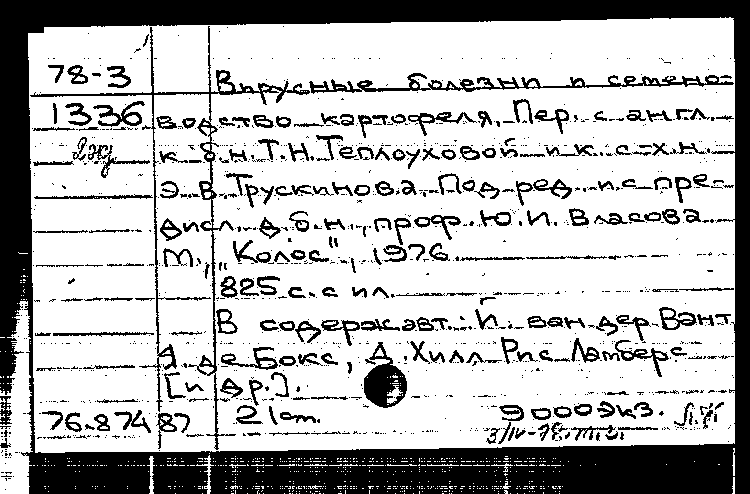 78-3 Вирусные болезни и семено-
1336 водство картофеля. Пер. с англ.
2 экз к.б.н. Т.Н. Теплоуховой и к. с-х.н.
Э.В. Трускинова. Под ред. и с пре-
дисл. д.б.н., проф. Ю.И. Власова
М., "Колос", 1976
325 с. с ил.
В содерж. авт.: Й. ван дер Вант
Я. де Бокс, Д. Хилл Рис Ламберс
[и др.].
76.874 87 21 cm. 9000 экз.
3/IV-78.